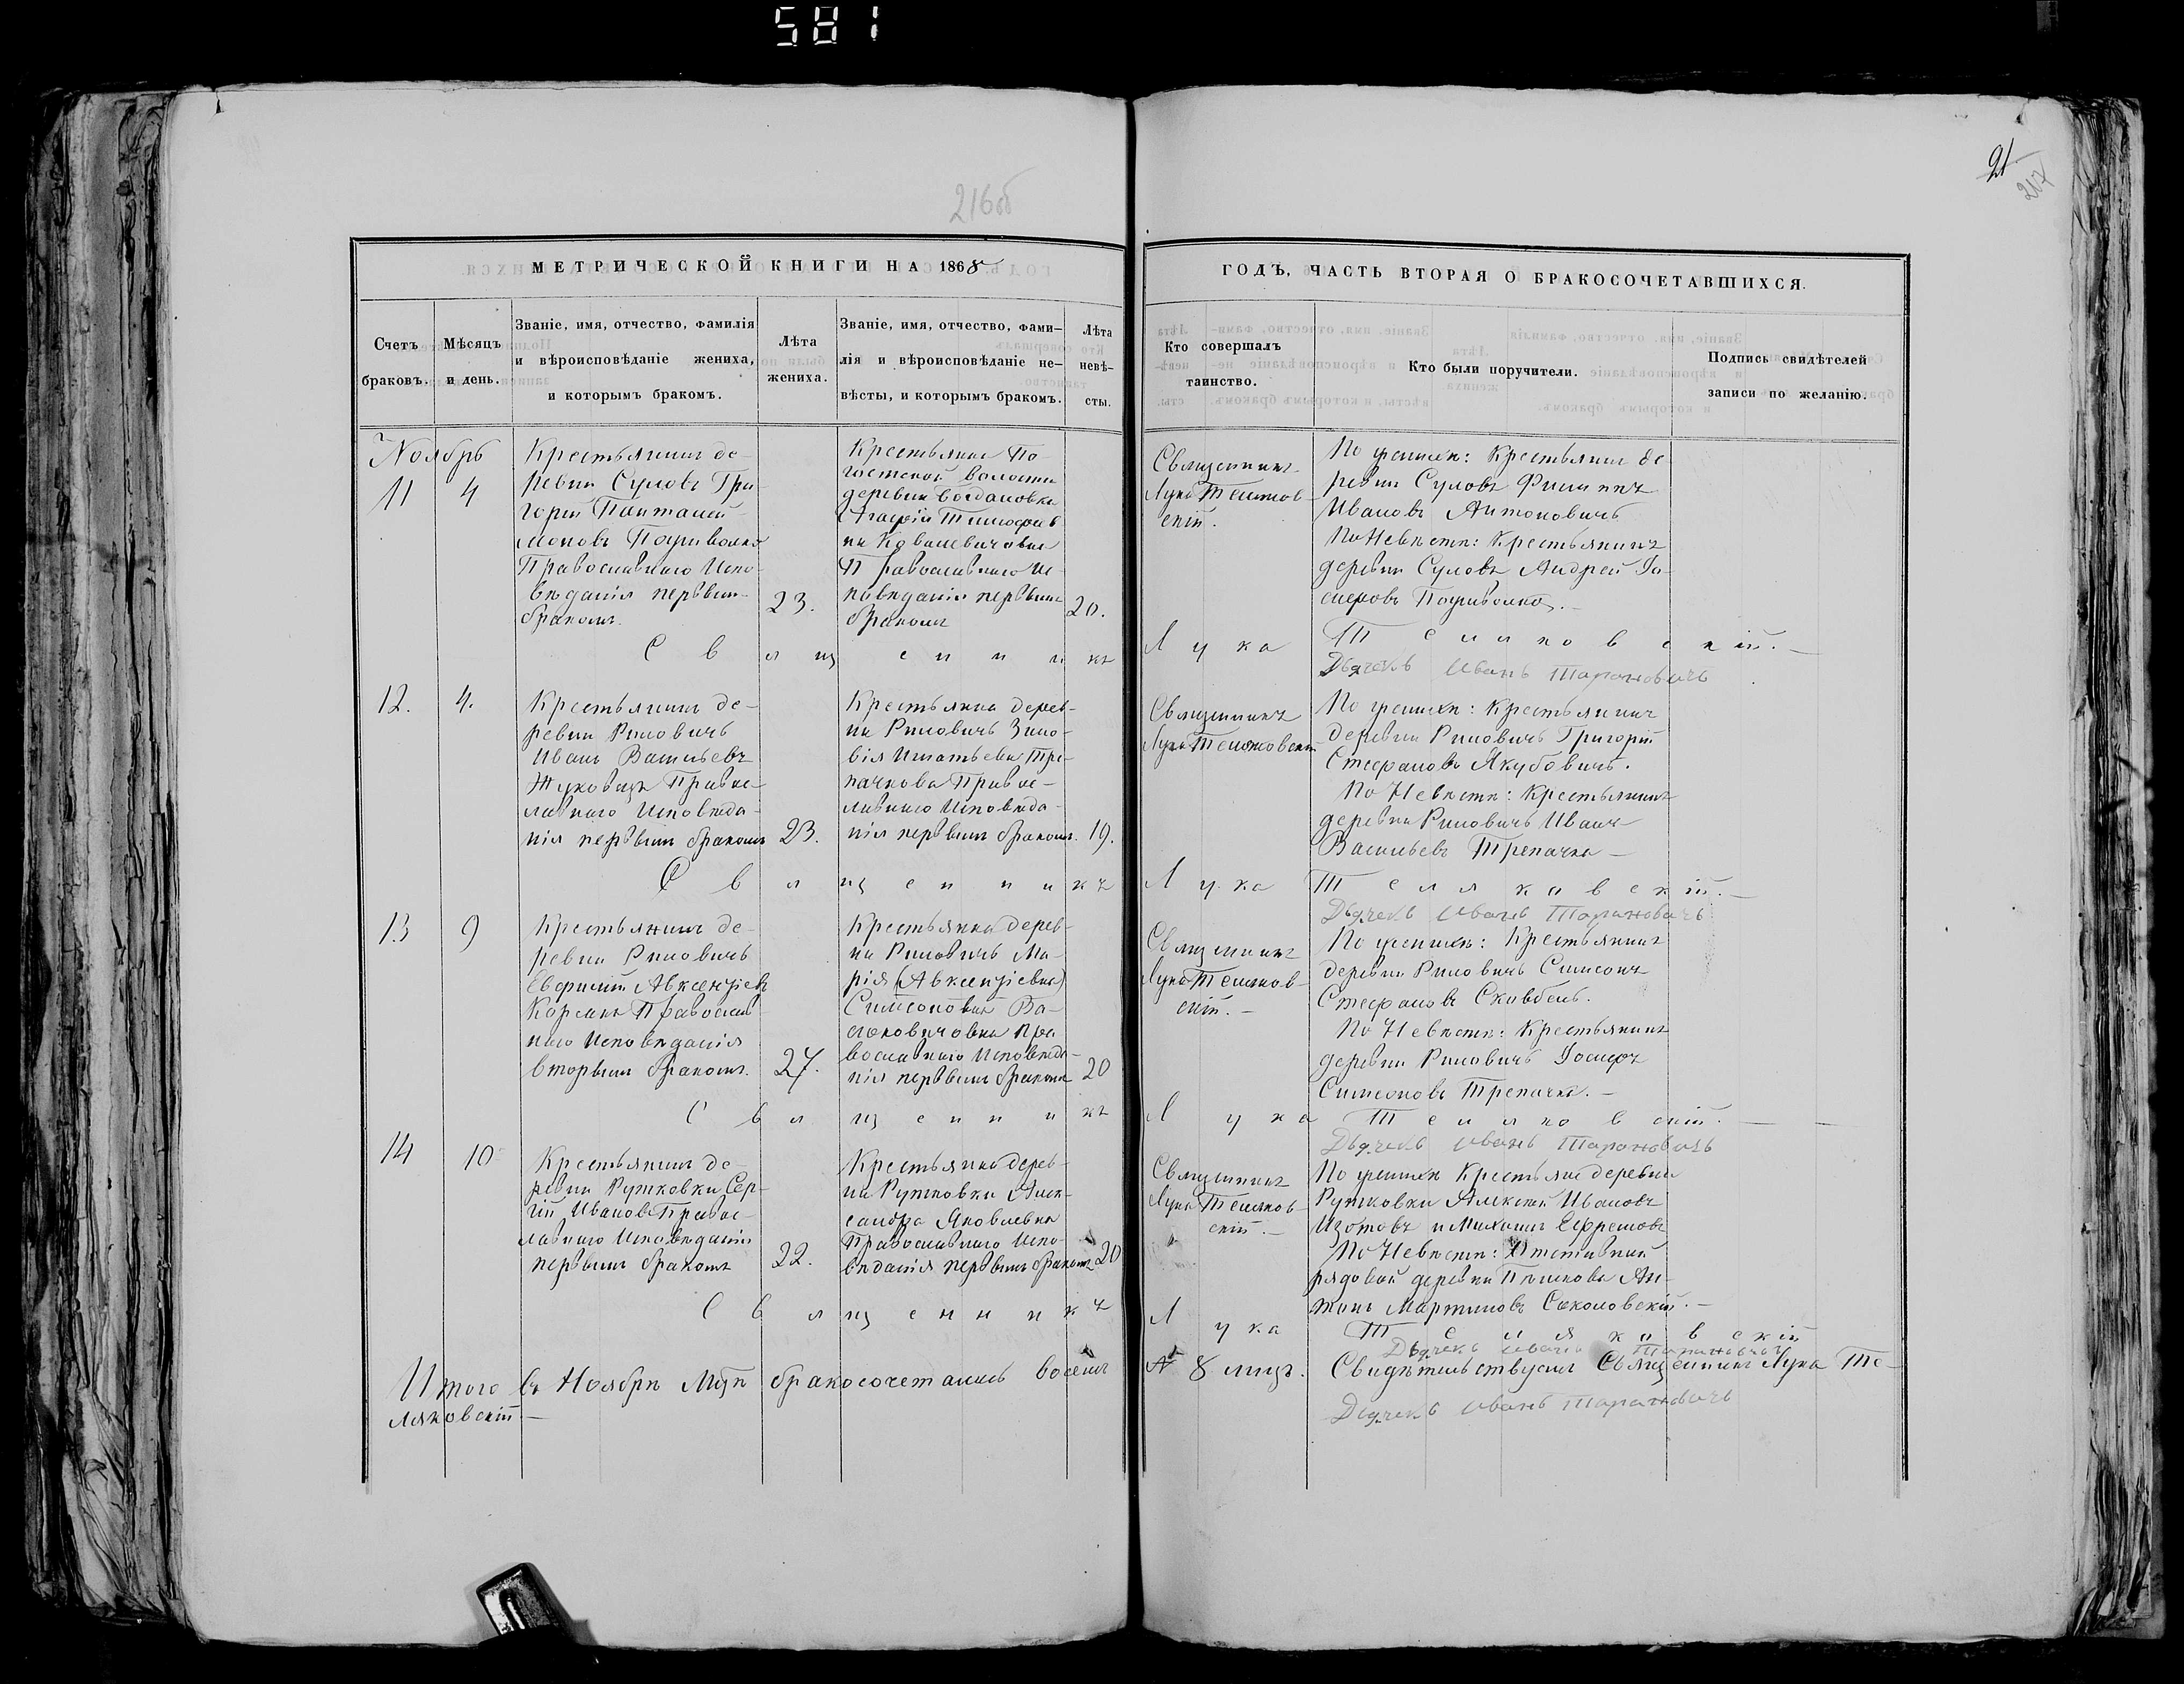 581
216об
21
217
МЕТРИЧЕСКОЙ КНИГИ НА 1868
ГОДЪ, ЧАСТЬ ВТОРАЯ О БРАКОСОЧЕТАВШИХСЯ.
Счетъ браковъ.
Мѣсяцъ и день.
Званіе, имя, отчество, фамилія
и вѣроисповѣданіе жениха,
и которымъ бракомъ.
Лѣта
жениха.
Званіе, имя, отчество, фами-
лія и вѣроисповѣданіе не-
вѣсты, и которымъ бракомъ.
Лѣта
невѣ-
сты.
Кто совершалъ
таинство.
Кто были поручители.
Подпись свидѣтелей
записи по желанію.
Ноябрь
11
4
Крестьянинъ де-
ревни Суловъ Гри-
горій Пантелей-
моновъ
Православнаго Испо-
вѣданія первымъ
бракомъ.
23.
Крестьянка По-
гостской волости
деревни Богдановка
Агафія Тимофеев
на Ковалевичовна
Православнаго Ис-
повѣданія первымъ
бракомъ
20.
Священникъ
Лука Теляков-
скій.
По женихѣ: Крестьянинъ де
ревни Суловъ Филиппъ
Ивановъ Антоновичъ
По Невѣстѣ: Крестьянинъ
деревни Суловъ Андрей Іо-
сифовъ
Священникъ Лука Теляковскій.
Дьячекъ Иванъ Тарановичъ
12.
4.
Крестьянинъ де-
ревни Римовичъ
Иванъ Васильевъ
Жуковецъ Правос-
лавнаго Исповѣда-
нія первымъ бракомъ
23.
Крестьянка дерев-
ни Римовичъ Зино-
вія Игнатьева Тре-
пачкова Правос-
лавнаго Исповѣда-
нія первымъ бракомъ.
19.
Священникъ
Лука Теляковскій
По женихѣ: Крестьянинъ
деревни Римовичъ Григорій
Стефановъ Якубовичъ.
По Невѣстѣ: Крестьянинъ
деревни Римовичъ Иванъ
Васильевъ Трепачка
Священникъ Лука Теляковскій.
Дьячекъ Иванъ Тарановичъ
13
9
Крестьянинъ де-
ревни Римовичъ
Евфимій Авксентіевъ
Православ
наго Исповѣданія
вторымъ бракомъ.
27.
Крестьянка дерев-
ни Римовичъ Ма-
рія (Авксентіевна)
Симеоновна Ва-
сюковичовна Пра
вославнаго Исповѣда-
нія первымъ бракомъ
20
Священникъ
Лука Теляков-
скій.
По женихѣ: Крестьянинъ
деревни Римовичъ Симеонъ
Стефановъ Сковбень.
По Невѣстѣ: Крестьянинъ
деревни Римовичъ Іосифъ
Симеоновъ Трепачка.
Священникъ Лука Теляковскій.
Дьячекъ Иванъ Тарановичъ
14
10
Крестьянинъ де-
ревни Рутковки Сер-
гій Ивановъ Правос-
лавнаго Исповѣданія
первымъ бракомъ
22.
Крестьянка дерев-
ни Рутковки Алек-
сандра Яковлевна
Православнаго Испо-
вѣданія первымъ бракомъ
20
Священникъ
Лука Теляков-
скій.
По женихѣ Крестьяне деревни
Рутковки Алексѣй Ивановъ
Изотовъ и Михаилъ Ефремовъ
По Невѣстѣ: Отставный
рядовой деревни Ан-
тонъ Мартиновъ Соколовскій.
Священникъ Лука Теляковскій
Дьячекъ Иванъ Тарановичъ
Итого въ Ноябрѣ Мцѣ бракосочетались восемь
8 лицъ. Свидѣтельствуемъ Священникъ Лука Те-
ляковскій.
Дьячекъ Иванъ Тарановичъ